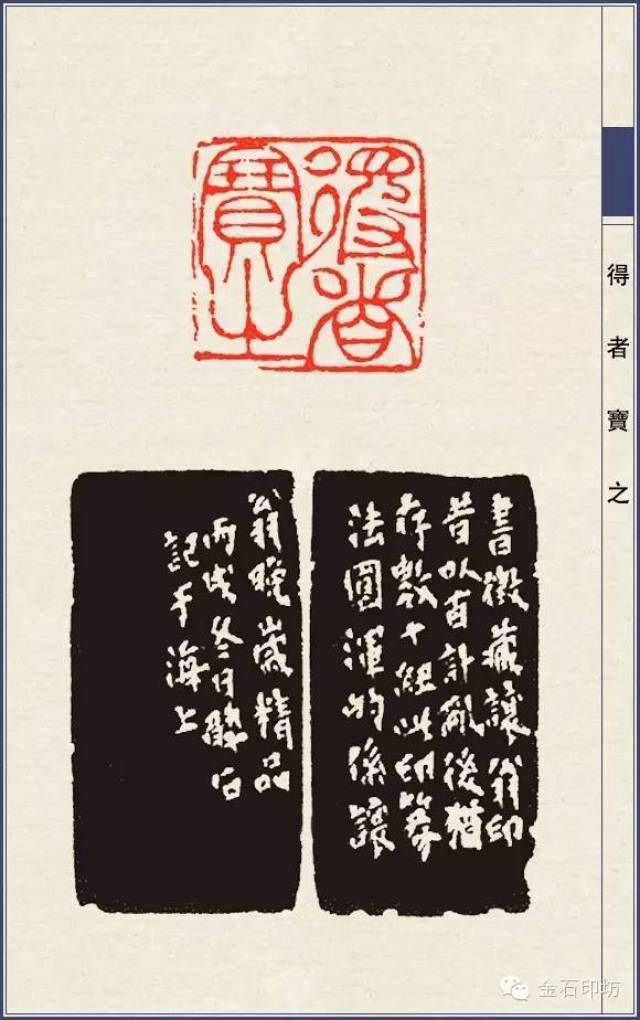 得者
寶之
得者寶之
書徵藏讓翁印
昔以百計亂後猶
存數十紐此印篆
法圓渾的係讓
翁晚歲精品
丙戌冬日石
記于海上
金石印坊